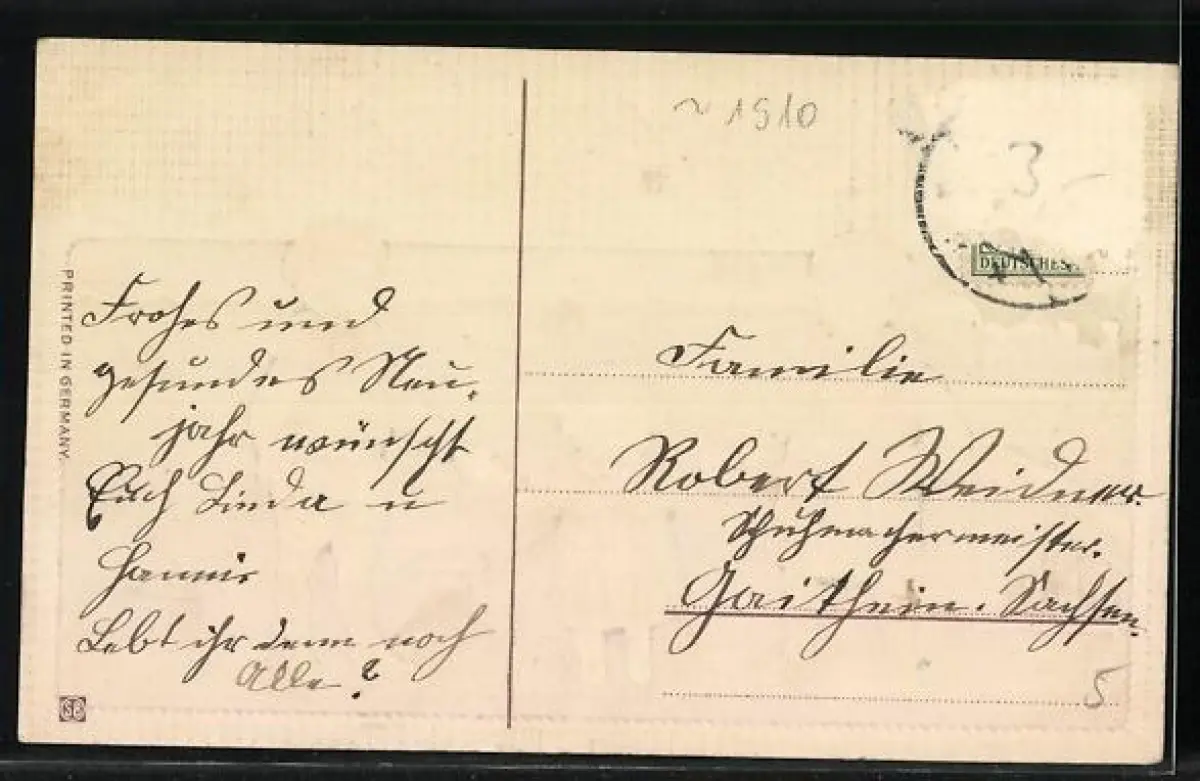 ~ 1910
3 –
DEUTSCHES
PRINTED IN GERMANY
Frohes und
gesundes Neu-
jahr wünscht
Euch Linda u
Hannis
Lebt ihr denn noch
Alle?
Familie
Robert Weidner.
Schuhmachermeister.
Gaithein. Sachsen.
5